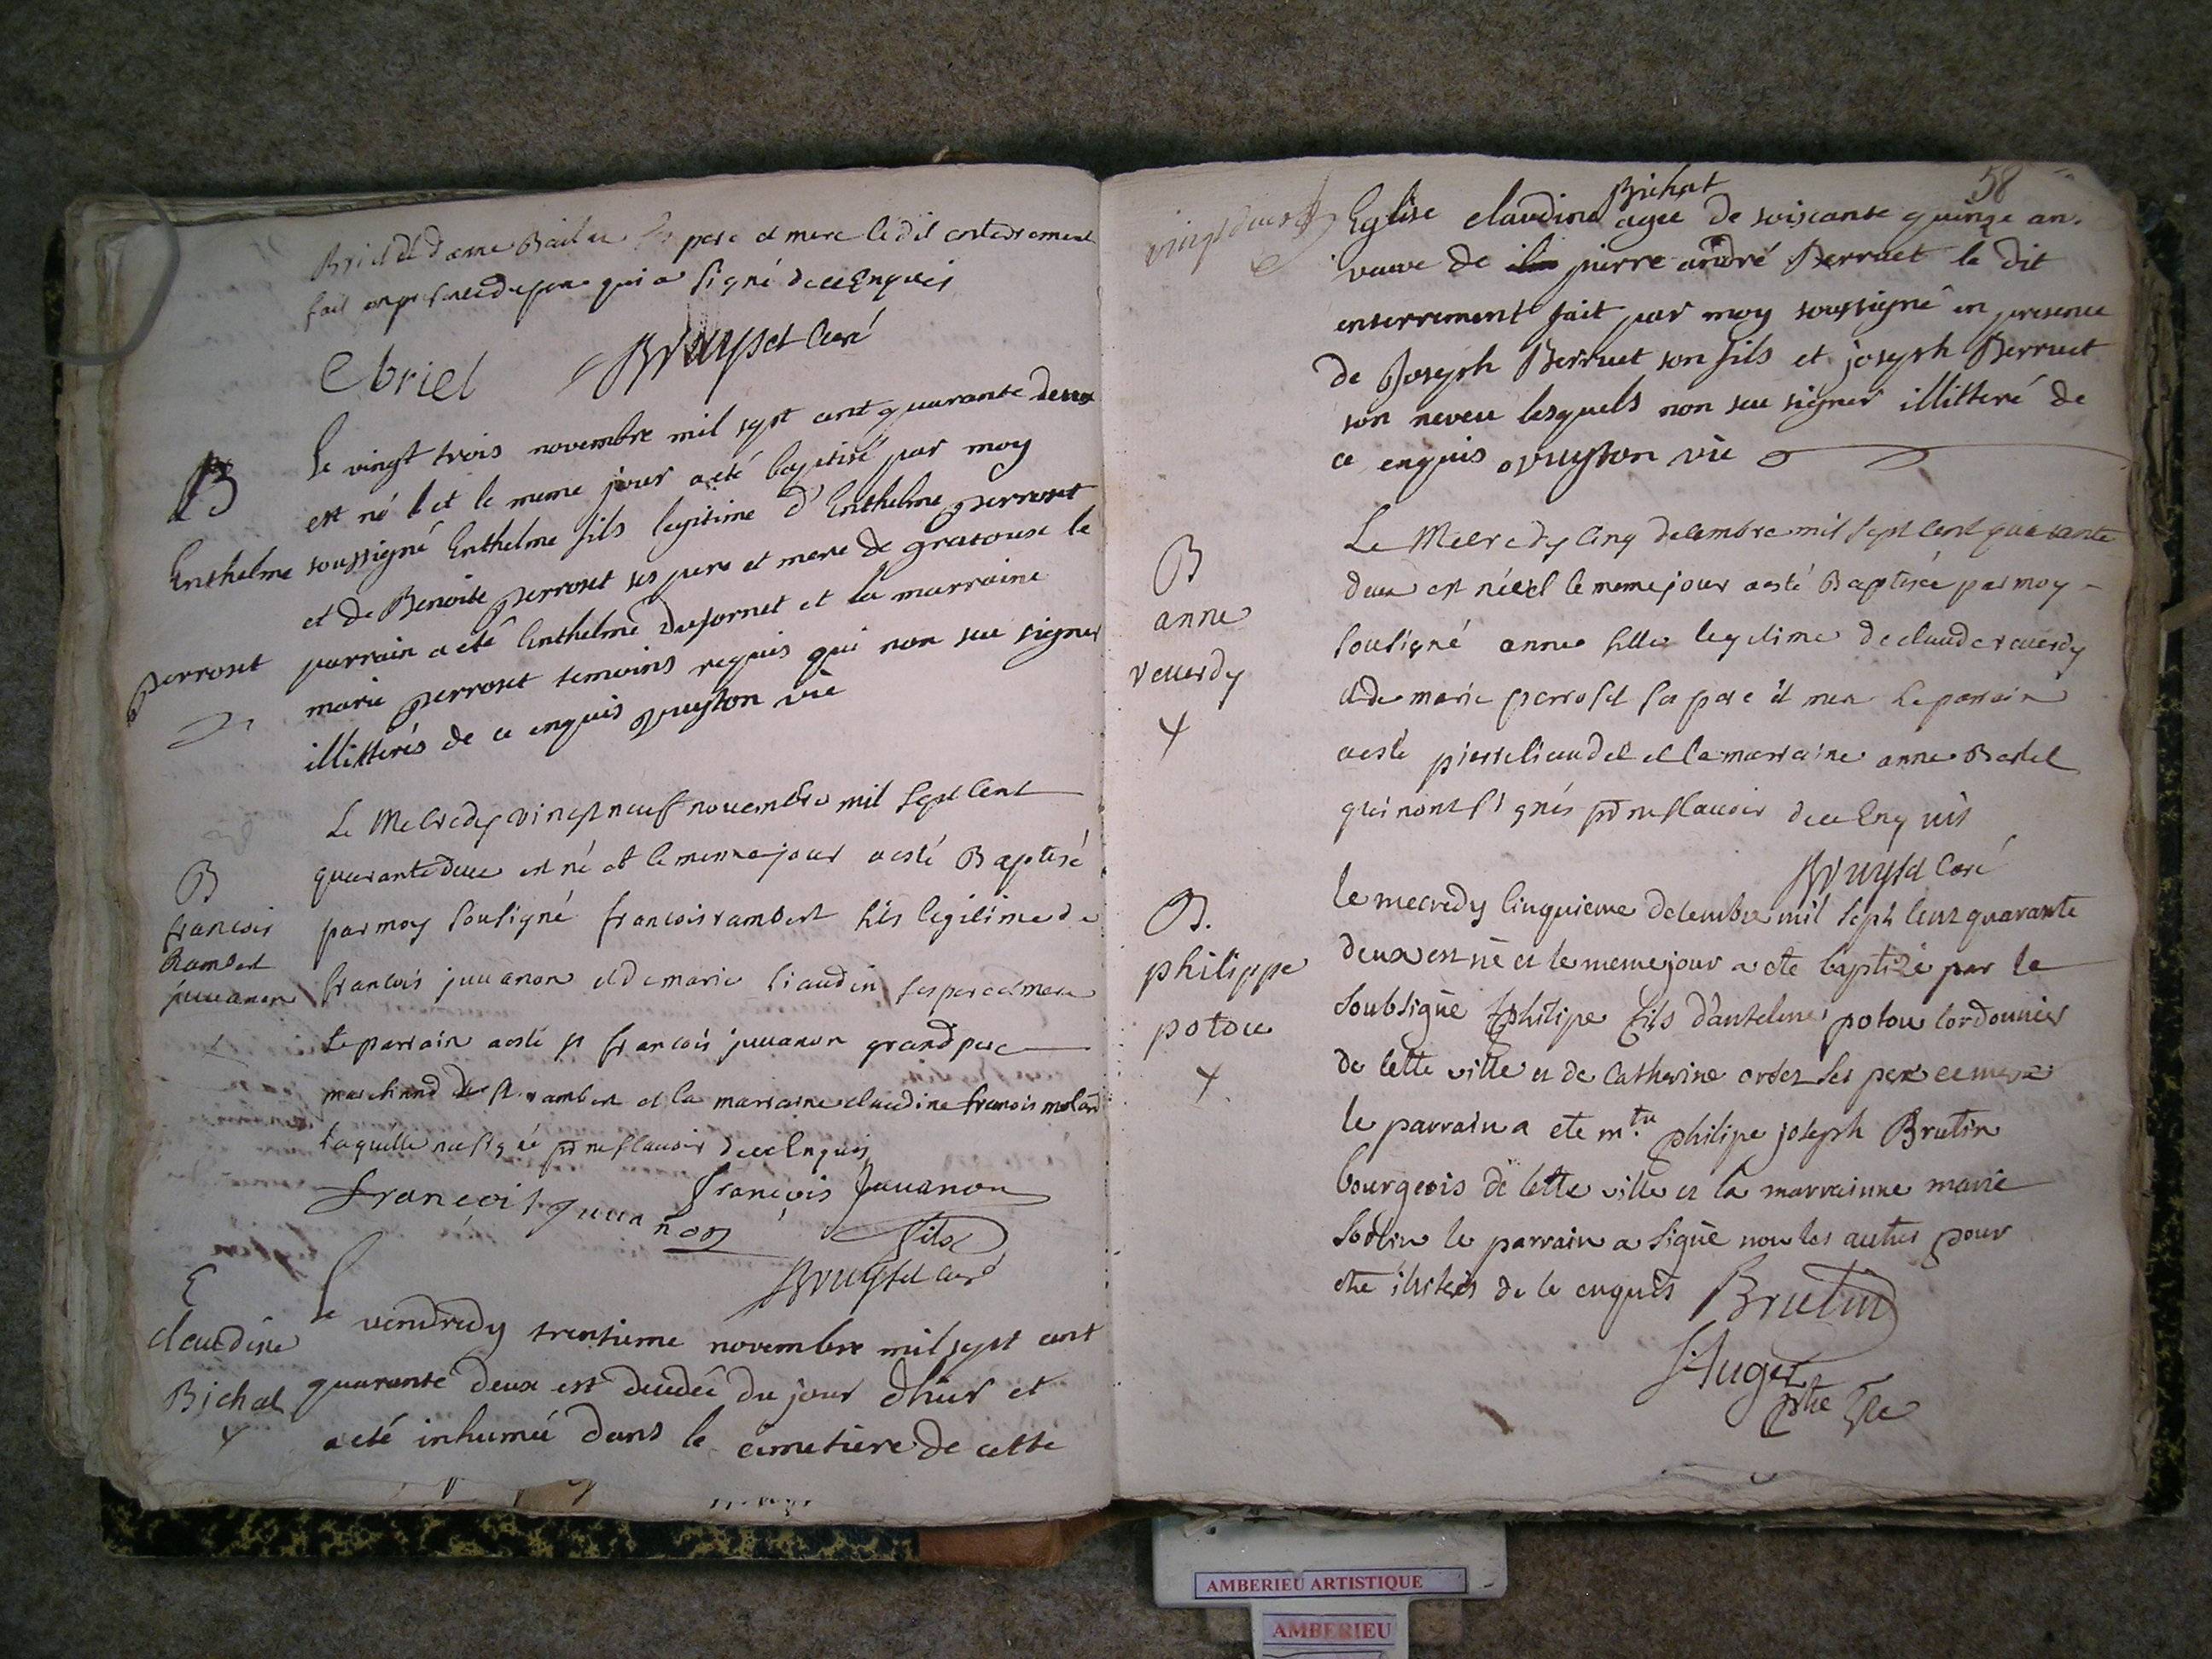 pere et mere ledit enterrement
fait en presence du pere qui a signé de ce Enquis
Ebriel Bruyset Curé
B
Enthelme
perroset
le vingt trois novembre mil sept cent quarante deux
est né et le meme jour a eté baptisé par moy
soussigné Enthelme fils legitime d'Enthelme perroset
et de Benoite perroset ses pere et mere de gratouse le
parrain a eté Enthelme Dufornet et la marraine
marie perroset temoins requis qui non seu signer
illitterés de ce enquis vie
B
francois
Rambert
juuanon
Le Mecredy vingt neuf novembre mil sept cent
quarante deux est né et le meme jour a esté Baptisé
par moy sousigné francois rambert fils legitime de
francois juuanon et de marie liaudin ses pere et mere
Le parrain a esté sr francois juuanon grand pere
marchand de st rambert et la marraine claudine francois
laquelle na signé pr ne scauoir de ce Enquis
François Juuanon François Juuanon
fils
Bruyset curé
E
claudine
Bichat
Le vendredy trentieme novembre mil sept cent
quarante deux est decedée du jour dhier et
a eté inhumée dans le cimetiere de cette
58
Bichat
Eglise claudine agee de soixante quinze an.
veuve de pierre andré Berruet le dit
enterrement fait par moy soussigné en presence
de Joseph Berruet son fils et joseph Berruet
son neveu lesquels non seu signer illitteré de
ce enquis vie
B
anne
reuerdy
Le Mecredy cinq decembre mil sept cent quarante
deux est née et le meme jour a esté Baptisée par moy
souligné anne fille legetime de claude reuerdy
et de marie perroset ses pere et mere Le parrain
a esté pierre liaudet et la marraine anne
qui nont signés pr ne scauoir de ce Enquis
Bruyset Curé
B.
philippe
potou
le mecredy cinquieme decembre mil sept cent quarante
deux est né et le meme jour a ete baptizé par le
soubsigné philipe fils d'antelme potou cordonnier
de cette ville et de catherine ses pere et mere
le parrain a ete philipe joseph Brutin
bourgeois de cette ville et la marrainne marie
le parrain a signé non les autres pour
etre de ce enquis Brutin
Auger
ptre vre
AMBERIEU ARTISTIQUE
AMBERIEU